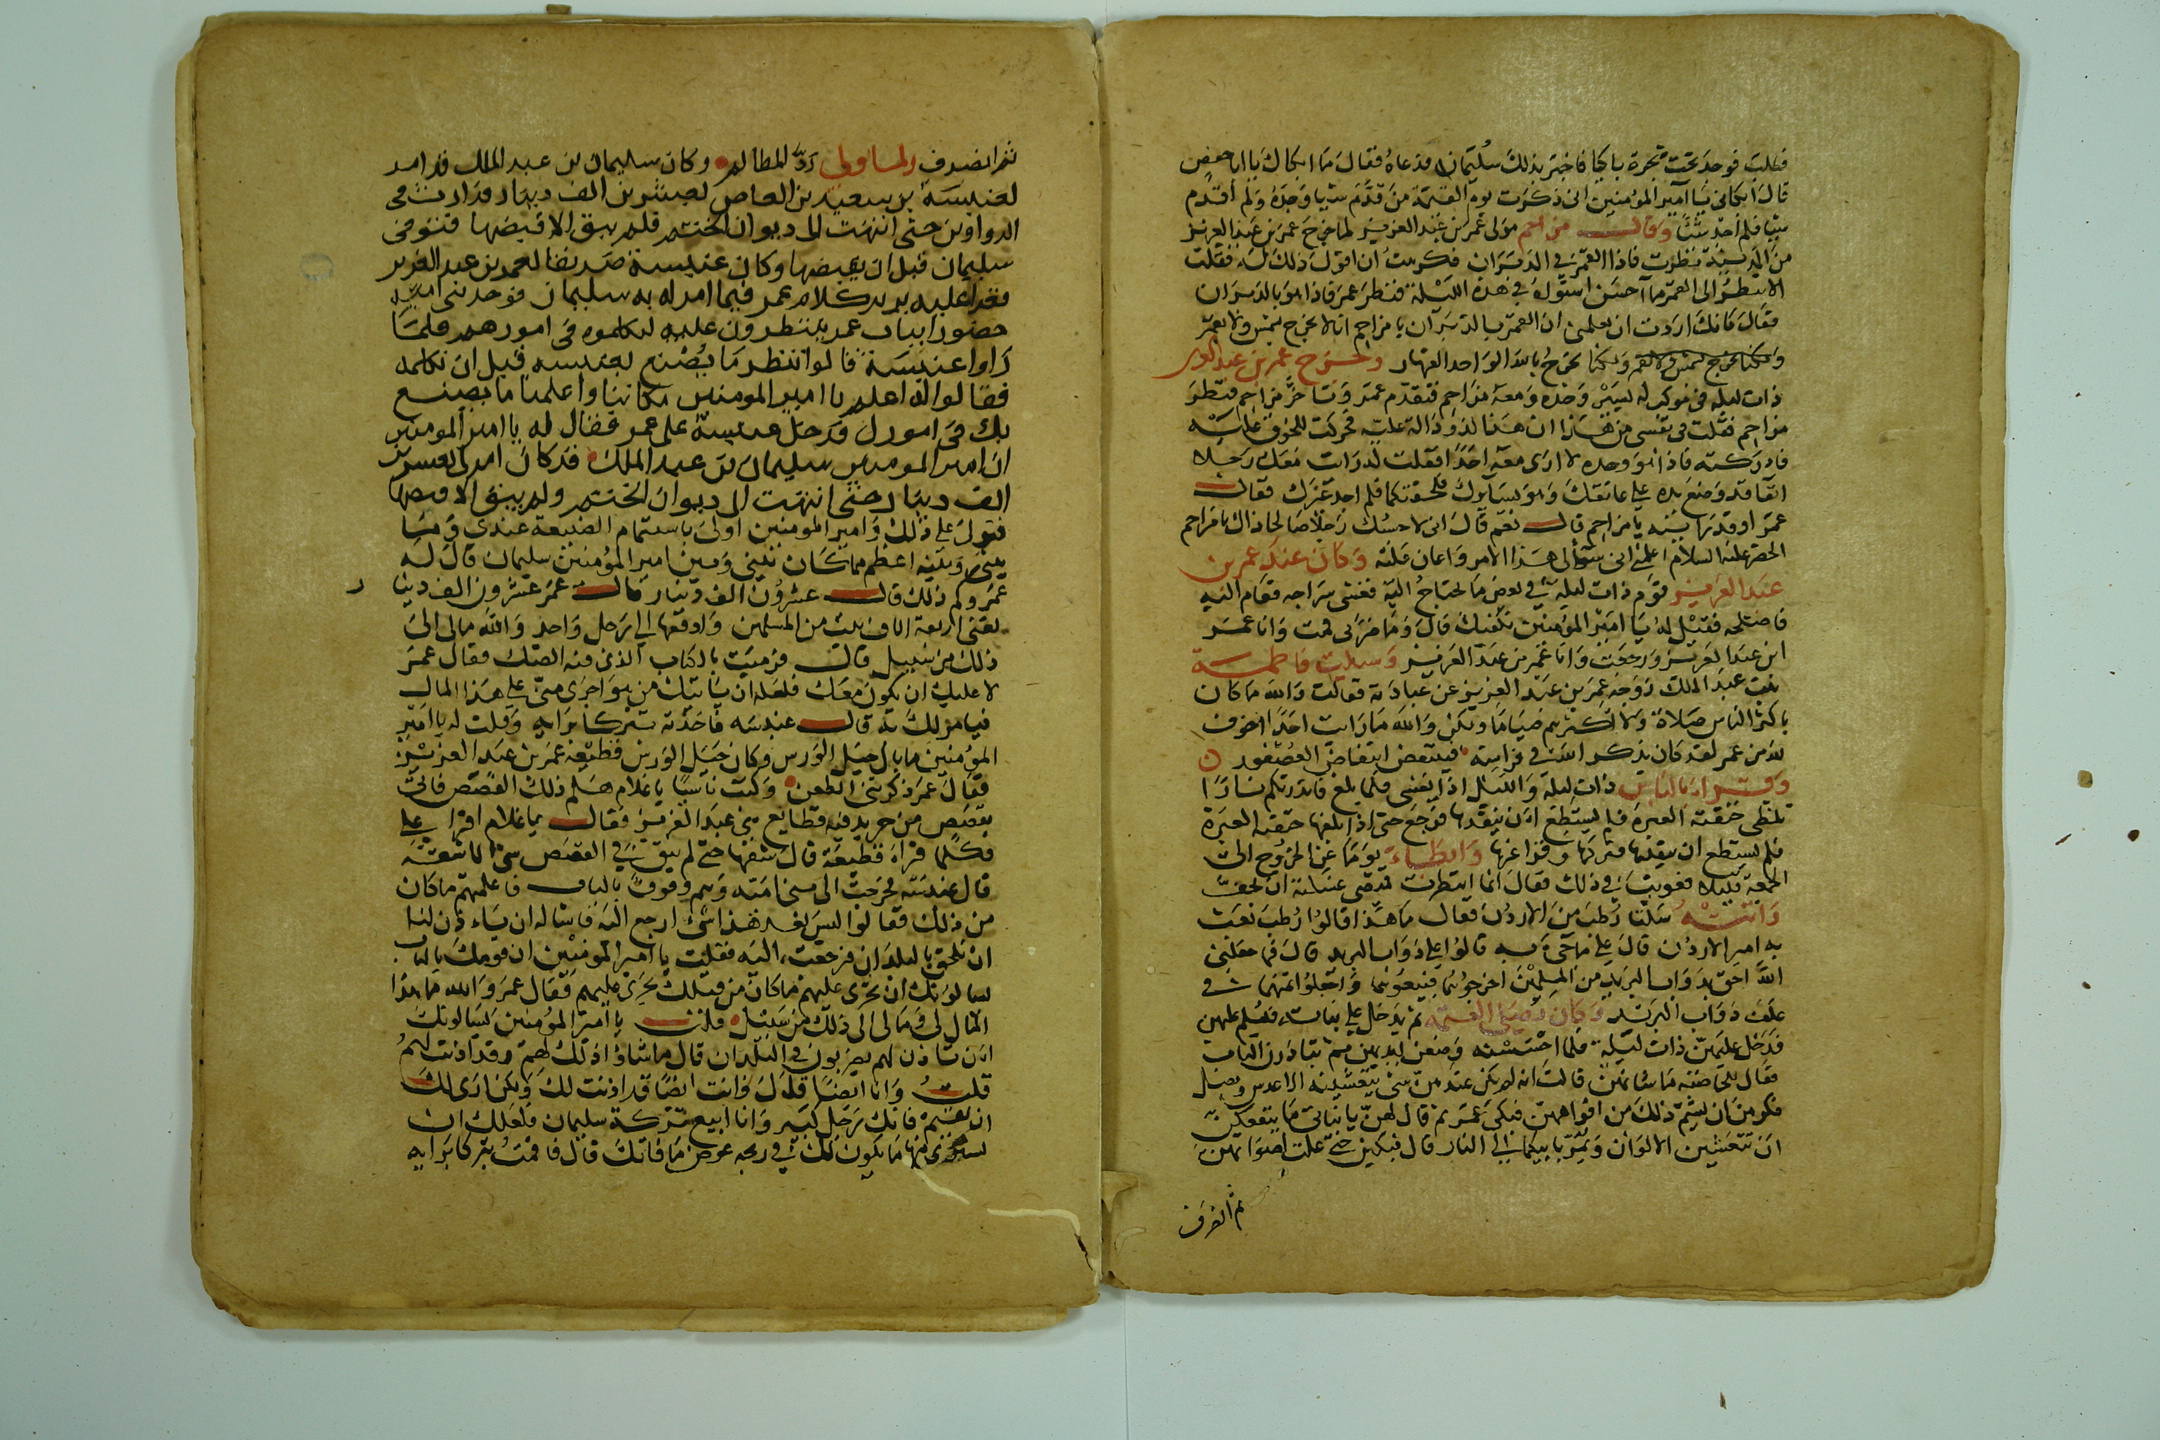 فطلب فوجد تحت شجرة باكيا فاخبر بذلك سليمان فدعاه فقال ما ابكاك يا ابا حفص
قال ابكاني يا امير المؤمنين اني ذكرت يوم القيمة من قدم شيا وجده ولم اقدم
شيا فلم اجد شيا وقال مزاحم مولى عمر بن عبد العزيز لما خرج عمر بن عبد العزيز
من المدينة نظرت فاذا القمر في الدبران فكرهت ان اقول ذلك له فقلت
الا تنظر الى القمر ما احسن استواه في هذه الليلة فنظر عمر فاذا هو بالدبران
فقال كانك اردت ان تعلمني ان القمر بالدبران يا مزاحم انا لا نخرج بشمس ولا بقمر
ولكنا نخرج بالله الواحد القهار وخرج عمر بن عبد العزيز
ذات ليلة في موكب له يسير وحده ومعه مزاحم فتقدم عمر وتاخر مزاحم فنظر
مزاحم فقلت في نفسي من هذا ان هذا لذو دالة عليه فحركت للحوق عليه
فادركته فاذا هو وحده لا ارى معه احدا فقلت له رايت معك رجلا
انفا قد وضع يده على عاتقك وهو يسايرك فلحقتكما فلم اجد غيرك فقال
عمر او قد رايته يا مزاحم قال نعم قال اني لاحسبك رجلا صالحا ذاك يا مزاحم
الخضر عليه السلام اعلمني اني سالي هذا الامر واعان عليه وكان عند عمر بن
عبد العزيز قوم ذات ليلة في بعض ما يحتاج اليه فغشي سراجه فقام اليه
فاصلحه فقيل له يا امير المؤمنين نكفيك قال وما ضرني قمت وانا عمر
ابن عبد العزيز ورجعت وانا عمر بن عبد العزيز وسيلت فاطمة
بنت عبد الملك زوجة عمر بن عبد العزيز عن عبادته فقالت والله ما كان
باكثر الناس صلاة ولا اكثرهم صياما ولكن والله ما رايت احدا اخوف
لله من عمر لقد كان يذكر الله في فراشه فينتفض انتفاض العصفور
وقرا بالناس ذات ليلة والليل اذا يغشى فلما بلغ فانذرتكم نارا
تلظى خنقته العبرة فلم يستطع ان ينفذها فرجع حتى اذا بلغها خنقته العبرة
فلم يستطع ان ينفذها فتركها وقرا غيرها وابطا يوما عن الخروج الى
الجمعة قليلا فعوتب في ذلك فقال انما انتظرت قميصي غسلته ان يجف
واتته سلتا رطب من الاردن فقال ما هذا قالوا رطب بعث
به امير الاردن قال على ما جي به قالوا على دواب البريد قال فما جعلني
الله احق بدواب البريد من المسلمين اخرجوهما فبيعوهما واجعلوا ثمنهما في
علف دواب البريد وكان يصلي العتمة ثم يدخل على بناته فيسلم عليهن
فدخل عليهن ذات ليلة فلما احسسنه وضعن ايديهن على افواههن ثم تبادرن الباب
فقال للحاضنة ما شانهن قالت انه لم يكن عندهن شي يتعشينه الا عدس وبصل
فكرهن ان يشم ذلك من افواههن فبكى عمر ثم قال لهن يا بناتي ما ينفعكن
ان تتعشين الالوان ويمر بابيكن الى النار قال فبكين حتى علت اصواتهن
ثم انصرف
ثم انصرف رد المظالم وكان سليمان بن عبد الملك قد امر
لعنبسة بن سعيد بن العاص بعشرين الف دينار فدارت في
الدواوين حتى انتهت الى ديوان الختم فلم يبق الا قبضها فتوفي
سليمان قبل ان يقبضها وكان عنبسة صديقا لعمر بن عبد العزيز
فغدا عليه يريد كلام عمر فيما امر له به سليمان فوجد بني امية
حضورا بباب عمر ينتظرون عليه ليكلموه في امورهم فلما
راوا عنبسة قالوا ننظر ما يصنع بعنبسة قبل ان نكلمه
فقالوا له اعلم يا امير المومنين مكاننا واعلمنا ما يصنع
بك في امورك فدخل عنبسة على عمر فقال له يا امير المومنين
ان امير المومنين سليمان بن عبد الملك قد كان امر لي بعشرين
الف دينار حتى انتهت الى ديوان الختم ولم يبق الا قبضها
فتوفي على ذلك وامير المومنين اولى باستتمام الصنيعة عندي وما
بيني وبينه اعظم مما كان بيني وبين امير المؤمنين سليمان قال له
عمر وكم ذلك قال عشرون الف دينار قال عمر عشرون الف دينار
تغني اربعة الاف بيت من المسلمين وادفعها الى رجل واحد والله مالي الى
ذلك من سبيل قال فرميت بالكتاب الذي فيه الصك فقال عمر
لا عليك ان يكون معك فلعله ان ياتيك من هو اجرى مني على هذا المال
فيامر لك به قال عنبسة فاخذته تبركا برايه وقلت له يا امير
المؤمنين ما بال جبل الورس وكان جبل الورس قطيعة عمر بن عبد العزيز
فقال عمر ذكرتني الطعن وكنت ناسيا يا غلام هلم ذلك القفص فاتي
بقفص من جريد فيه قطايع بني عبد العزيز فقال يا غلام اقرا علي
فكلما قرا قطيعة قال شقها حتى لم يبق في القفص شي الا شقه
قال عنبسة فخرجت الى بني امية وهم وقوف بالباب فاعلمتهم ما كان
من ذلك فقالوا ليس بعد هذا شي ارجع اليه فاساله ان ياذن لنا
ان نلحق بالبلدان فرجعت اليه فقلت يا امير المؤمنين ان قومك بالباب
يسالونك ان تجري عليهم ما كان من قبلك يجري عليهم فقال عمر والله ما هذا
المال لي وما لي الى ذلك من سبيل قلت يا امير المؤمنين يسالونك
ان تاذن لهم يضربون في البلدان قال ما شاؤا ذلك لهم وقد اذنت لهم
قلت وانا ايضا قال وانت ايضا قد اذنت لك ولكن ارى لك
ان تقيم فانك رجل كبير وانا ابيع تركة سليمان فلعلك ان
تشتري منها ما يكون لك في ربحه عوض ما فاتك قال فاقمت تبركا برايه